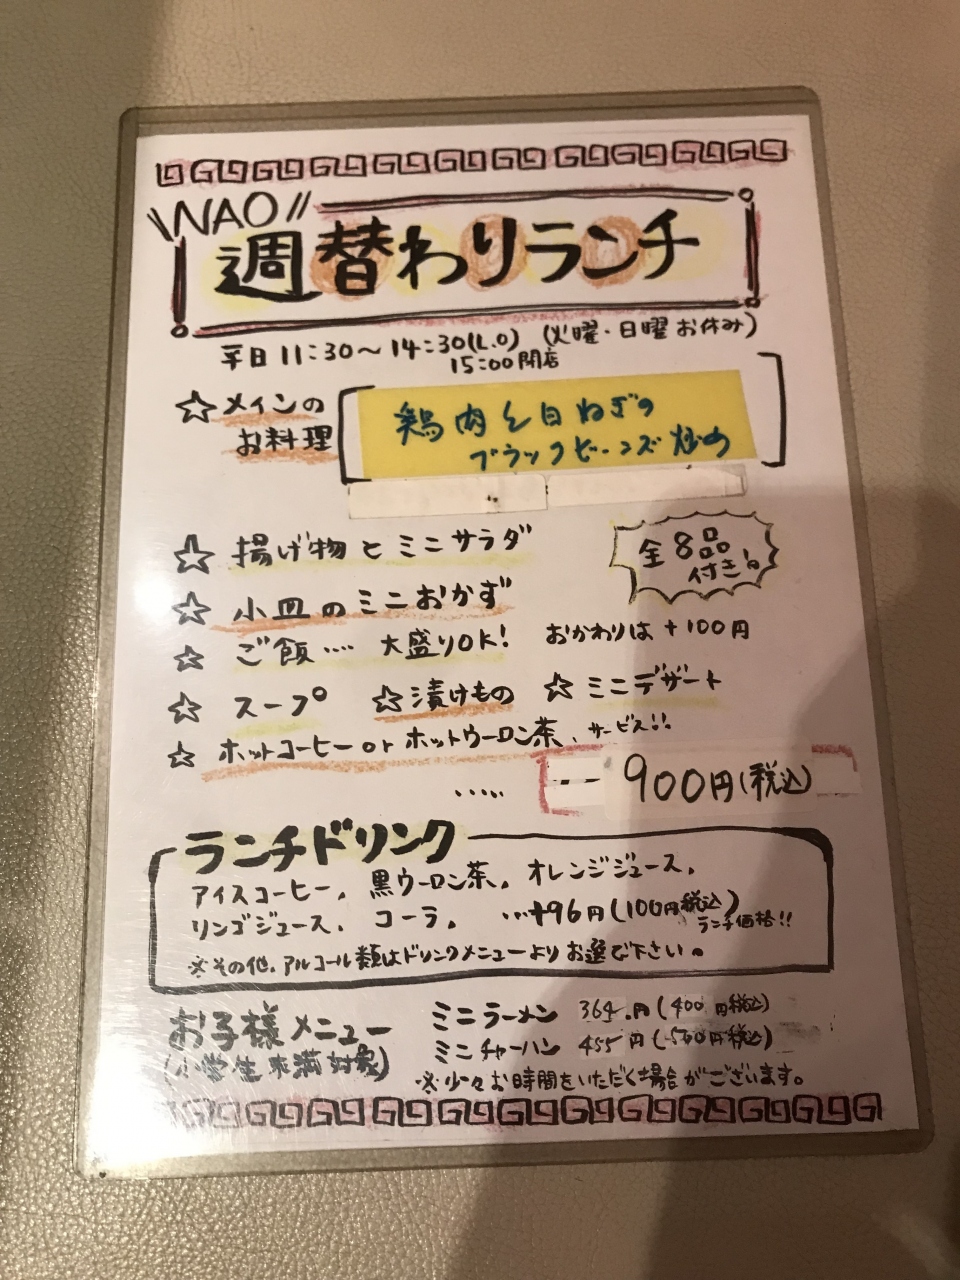 NAO
週替わりランチ
平日 11:30〜14:30(L.O) (火曜・日曜 お休み)
15:00閉店
☆メインの
お料理
鶏肉と白ねぎの
ブラックビーンズ炒め
☆ 揚げ物とミニサラダ
全8品
付き!
☆ 小皿のミニおかず
☆ ご飯…. 大盛りOK! おかわりは +100円
☆ スープ ☆漬けもの ☆ ミニデザート
☆ ホットコーヒー or ホットウーロン茶、サービス!!
..... 900円(税込)
ランチドリンク
アイスコーヒー, 黒ウーロン茶, オレンジジュース,
リンゴジュース, コーラ, …+96円(100円税込)
ランチ価格!!
※その他,アルコール類はドリンクメニューよりお選び下さい。
お子様メニュー
(小学生未満対象)
ミニラーメン 364.円(400円税込)
ミニチャーハン 455円(500円税込)
※少々お時間をいただく場合がございます。